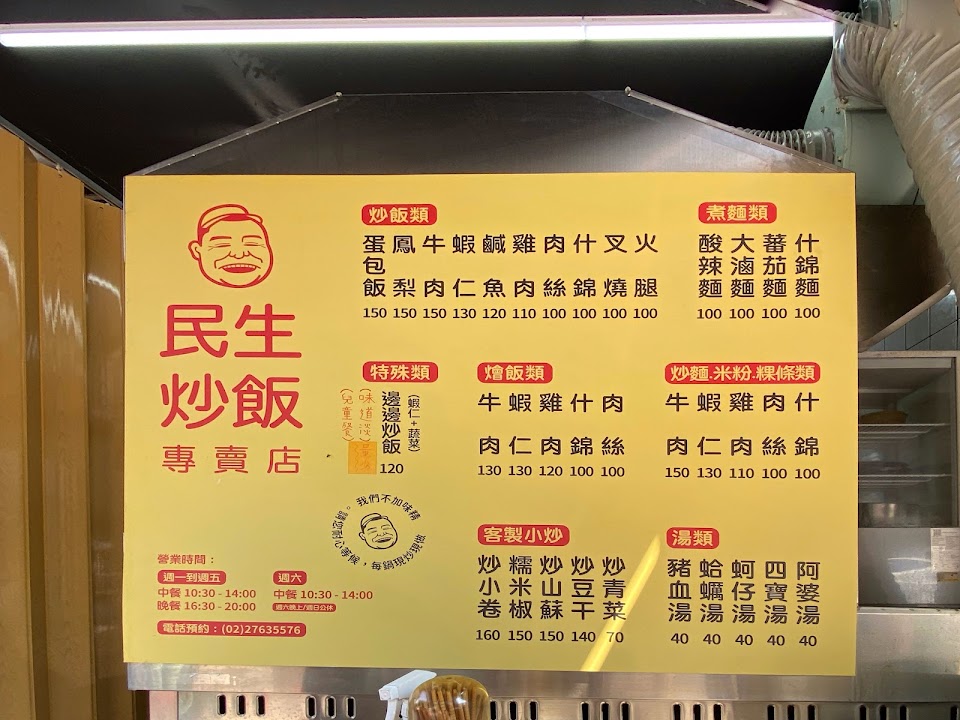 民生
炒飯
專賣店
營業時間：
週一到週五
中餐 10:30 - 14:00
晚餐 16:30 - 20:00
週六
中餐 10:30 - 14:00
週六晚上/週日公休
電話預約：(02)27635576
炒飯類
蛋包飯 150
鳳梨 150
牛肉 150
蝦仁 130
鹹魚 120
雞肉 110
肉絲 100
什錦 100
叉燒 100
火腿 100
煮麵類
酸辣麵 100
大滷麵 100
蕃茄麵 100
什錦麵 100
特殊類
(蝦仁+蔬菜)
邊邊炒飯 120
(味道淡)
(兒童餐)
我們不加味精
，每鍋現炒現做
燴飯類
牛肉 130
蝦仁 130
雞肉 120
什錦 100
肉絲 100
炒麵.米粉.粿條類
牛肉 150
蝦仁 130
雞肉 110
肉絲 100
什錦 100
客製小炒
炒小卷 160
糯米椒 150
炒山蘇 150
炒豆干 140
炒青菜 70
湯類
豬血湯 40
蛤蠣湯 40
蚵仔湯 40
四寶湯 40
阿婆湯 40